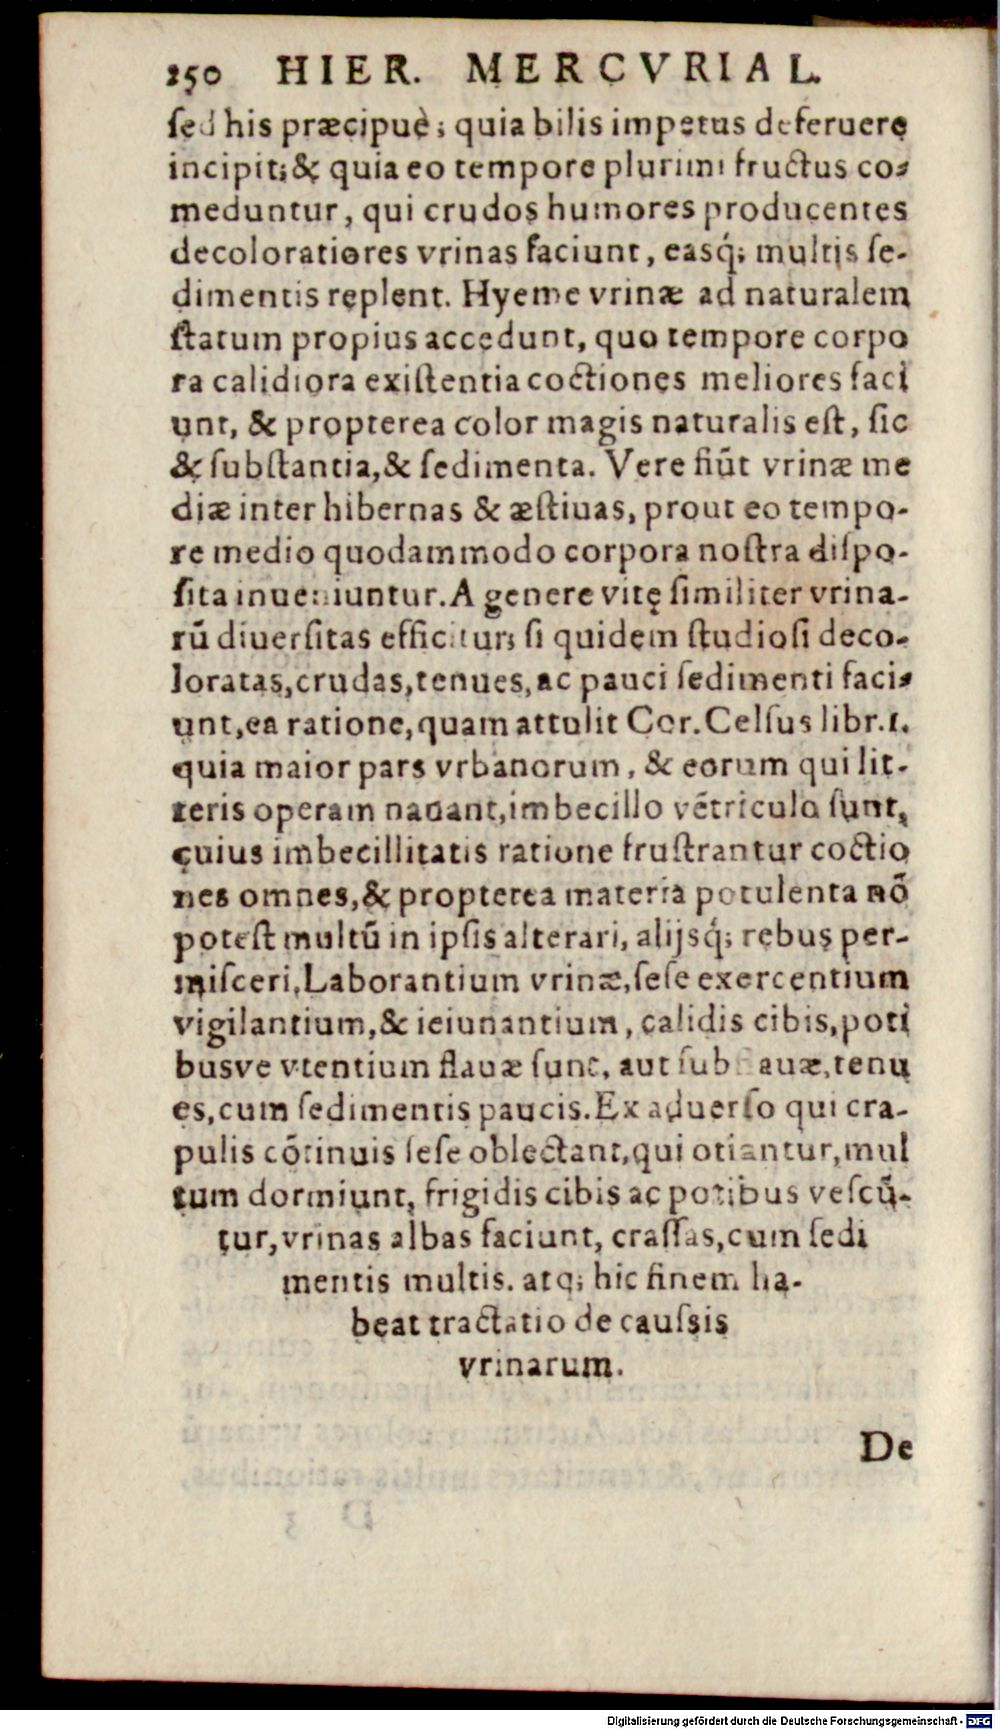 250 HIER. MERCVRIAL.
ſed his præcipuè; quia bilis impetus deferuere
incipit; & quia eo tempore plurimi fructus co-
meduntur, qui crudos humores producentes
decoloratiores vrinas faciunt, easq́; multis ſe-
dimentis replent. Hyeme vrinæ ad naturalem
ſtatum propius accedunt, quo tempore corpo
ra calidiora exiſtentia coctiones meliores faci
unt, & propterea color magis naturalis eſt, ſic
& ſubſtantia, & ſedimenta. Vere fiūt vrinæ me
diæ inter hibernas & æſtiuas, prout eo tempo-
re medio quodammodo corpora noſtra diſpo-
ſita inueniuntur. A genere vitę ſimiliter vrina-
rū diuerſitas efficitur; ſi quidem ſtudioſi deco-
loratas, crudas, tenues, ac pauci ſedimenti faci-
unt, ea ratione, quam attulit Cor. Celſus libr. 1.
quia maior pars vrbanorum, & eorum qui lit-
teris operam nauant, imbecillo vētriculo ſunt,
cuius imbecillitatis ratione fruſtrantur coctio
nes omnes, & propterea materia potulenta nō
poteſt multū in ipſis alterari, alijsq́; rebus per-
miſceri, Laborantium vrinæ, ſeſe exercentium
vigilantium, & ieiunantium, calidis cibis, poti
busve vtentium flauæ ſunt, aut ſubflauæ, tenu
es, cum ſedimentis paucis. Ex aduerſo qui cra-
pulis cōtinuis ſeſe oblectant, qui otiantur, mul
tum dormiunt, frigidis cibis ac potibus veſcū-
tur, vrinas albas faciunt, craſſas, cum ſedi
mentis multis. atq; hic finem ha-
beat tractatio de cauſsis
vrinarum.
De
Digitalisierung gefördert durch die Deutsche Forschungsgemeinschaft - DFG